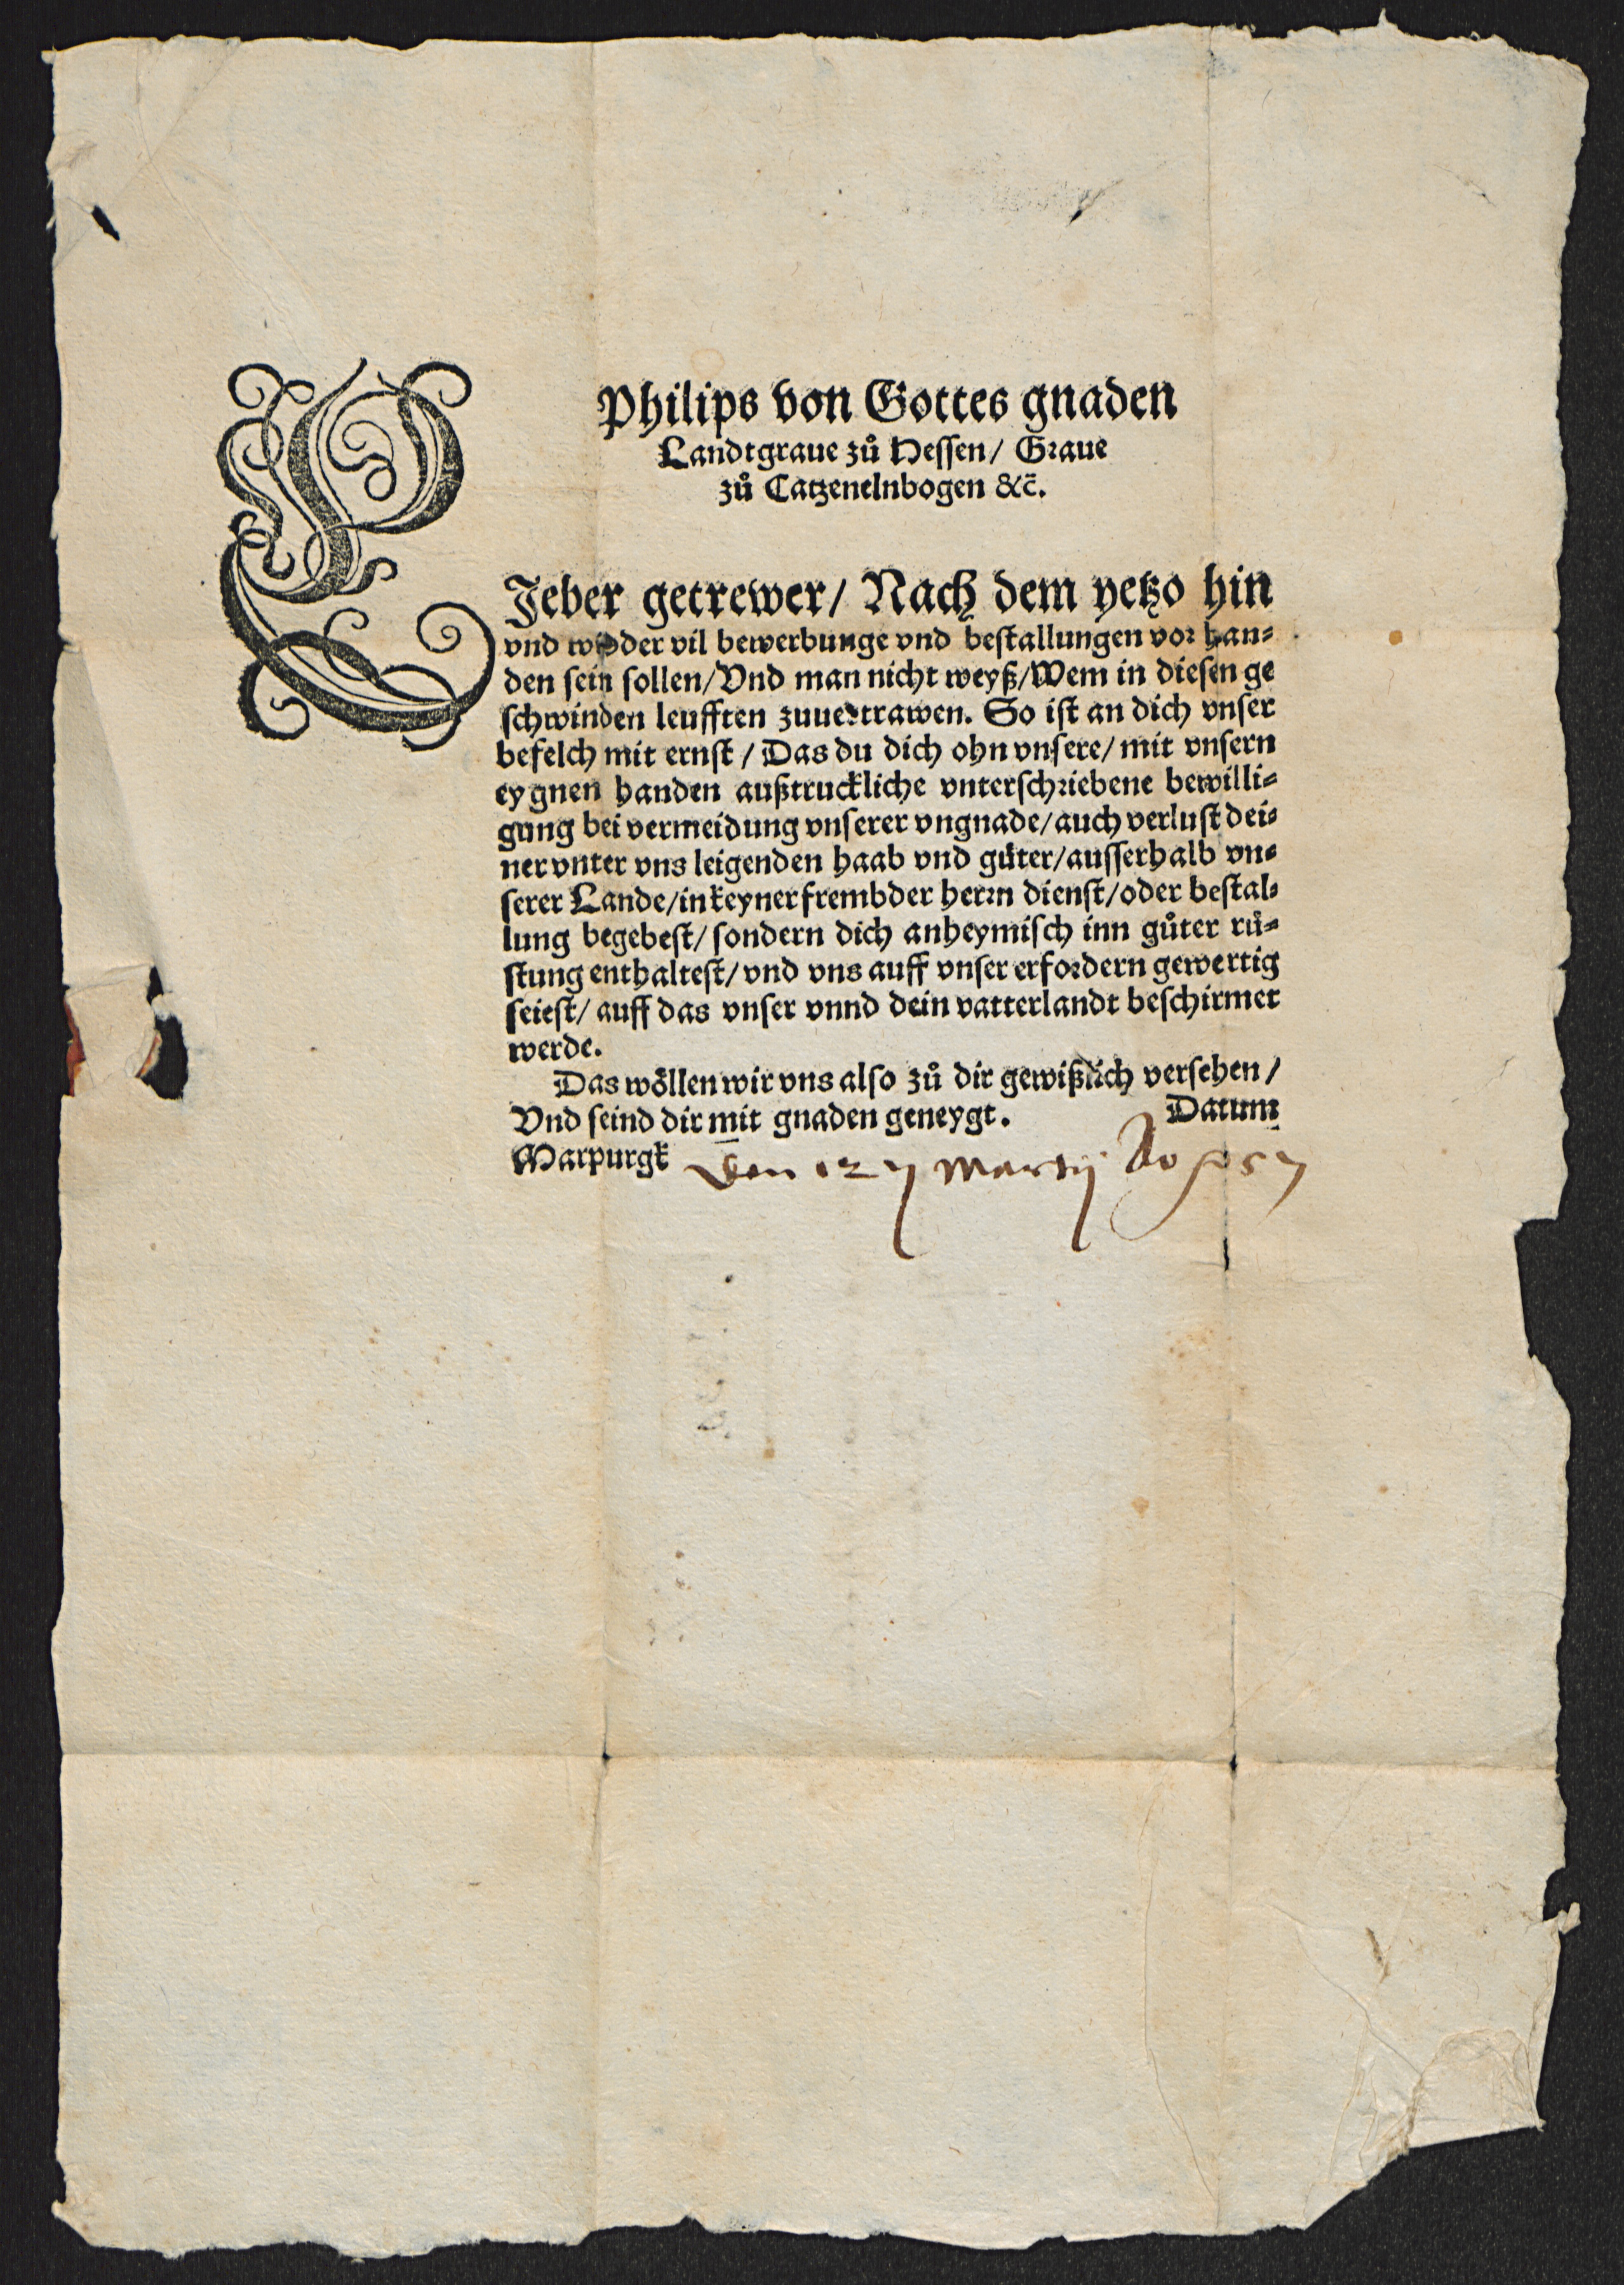 Philips von Gottes gnaden
Landtgraue zů Hessen/ Graue
zů Catzenelnbogen &c̄.
LIeber getrewer/ Nach dem yetzo hin
vnd wider vil bewerbunge vnd bestallungen vor han⸗
den sein sollen/Vnd man nicht weyß/Wem in diesen ge
schwinden leufften zuuertrawen. So ist an dich vnser
befelch mit ernst / Das du dich ohn vnsere/ mit vnsern
eygnen handen außtruckliche vnterschriebene bewilli⸗
gung bei vermeidung vnserer vngnade/auch verlust dei⸗
ner vnter vns leigenden haab vnd güter/ausserhalb vn⸗
serer Lande/in keyner frembder herrn dienst/oder bestal⸗
lung begebest/ sondern dich anheymisch inn gůter rü⸗
stung enthaltest/ vnd vns auff vnser erfordern gewertig
seiest/ auff das vnser vnnd dein vatterlandt beschirmet
werde.
Das wöllen wir vns also zů dir gewißlich versehen/
Vnd seind dir mit gnaden geneygt. Datum
Marpurgk den Martij Ao